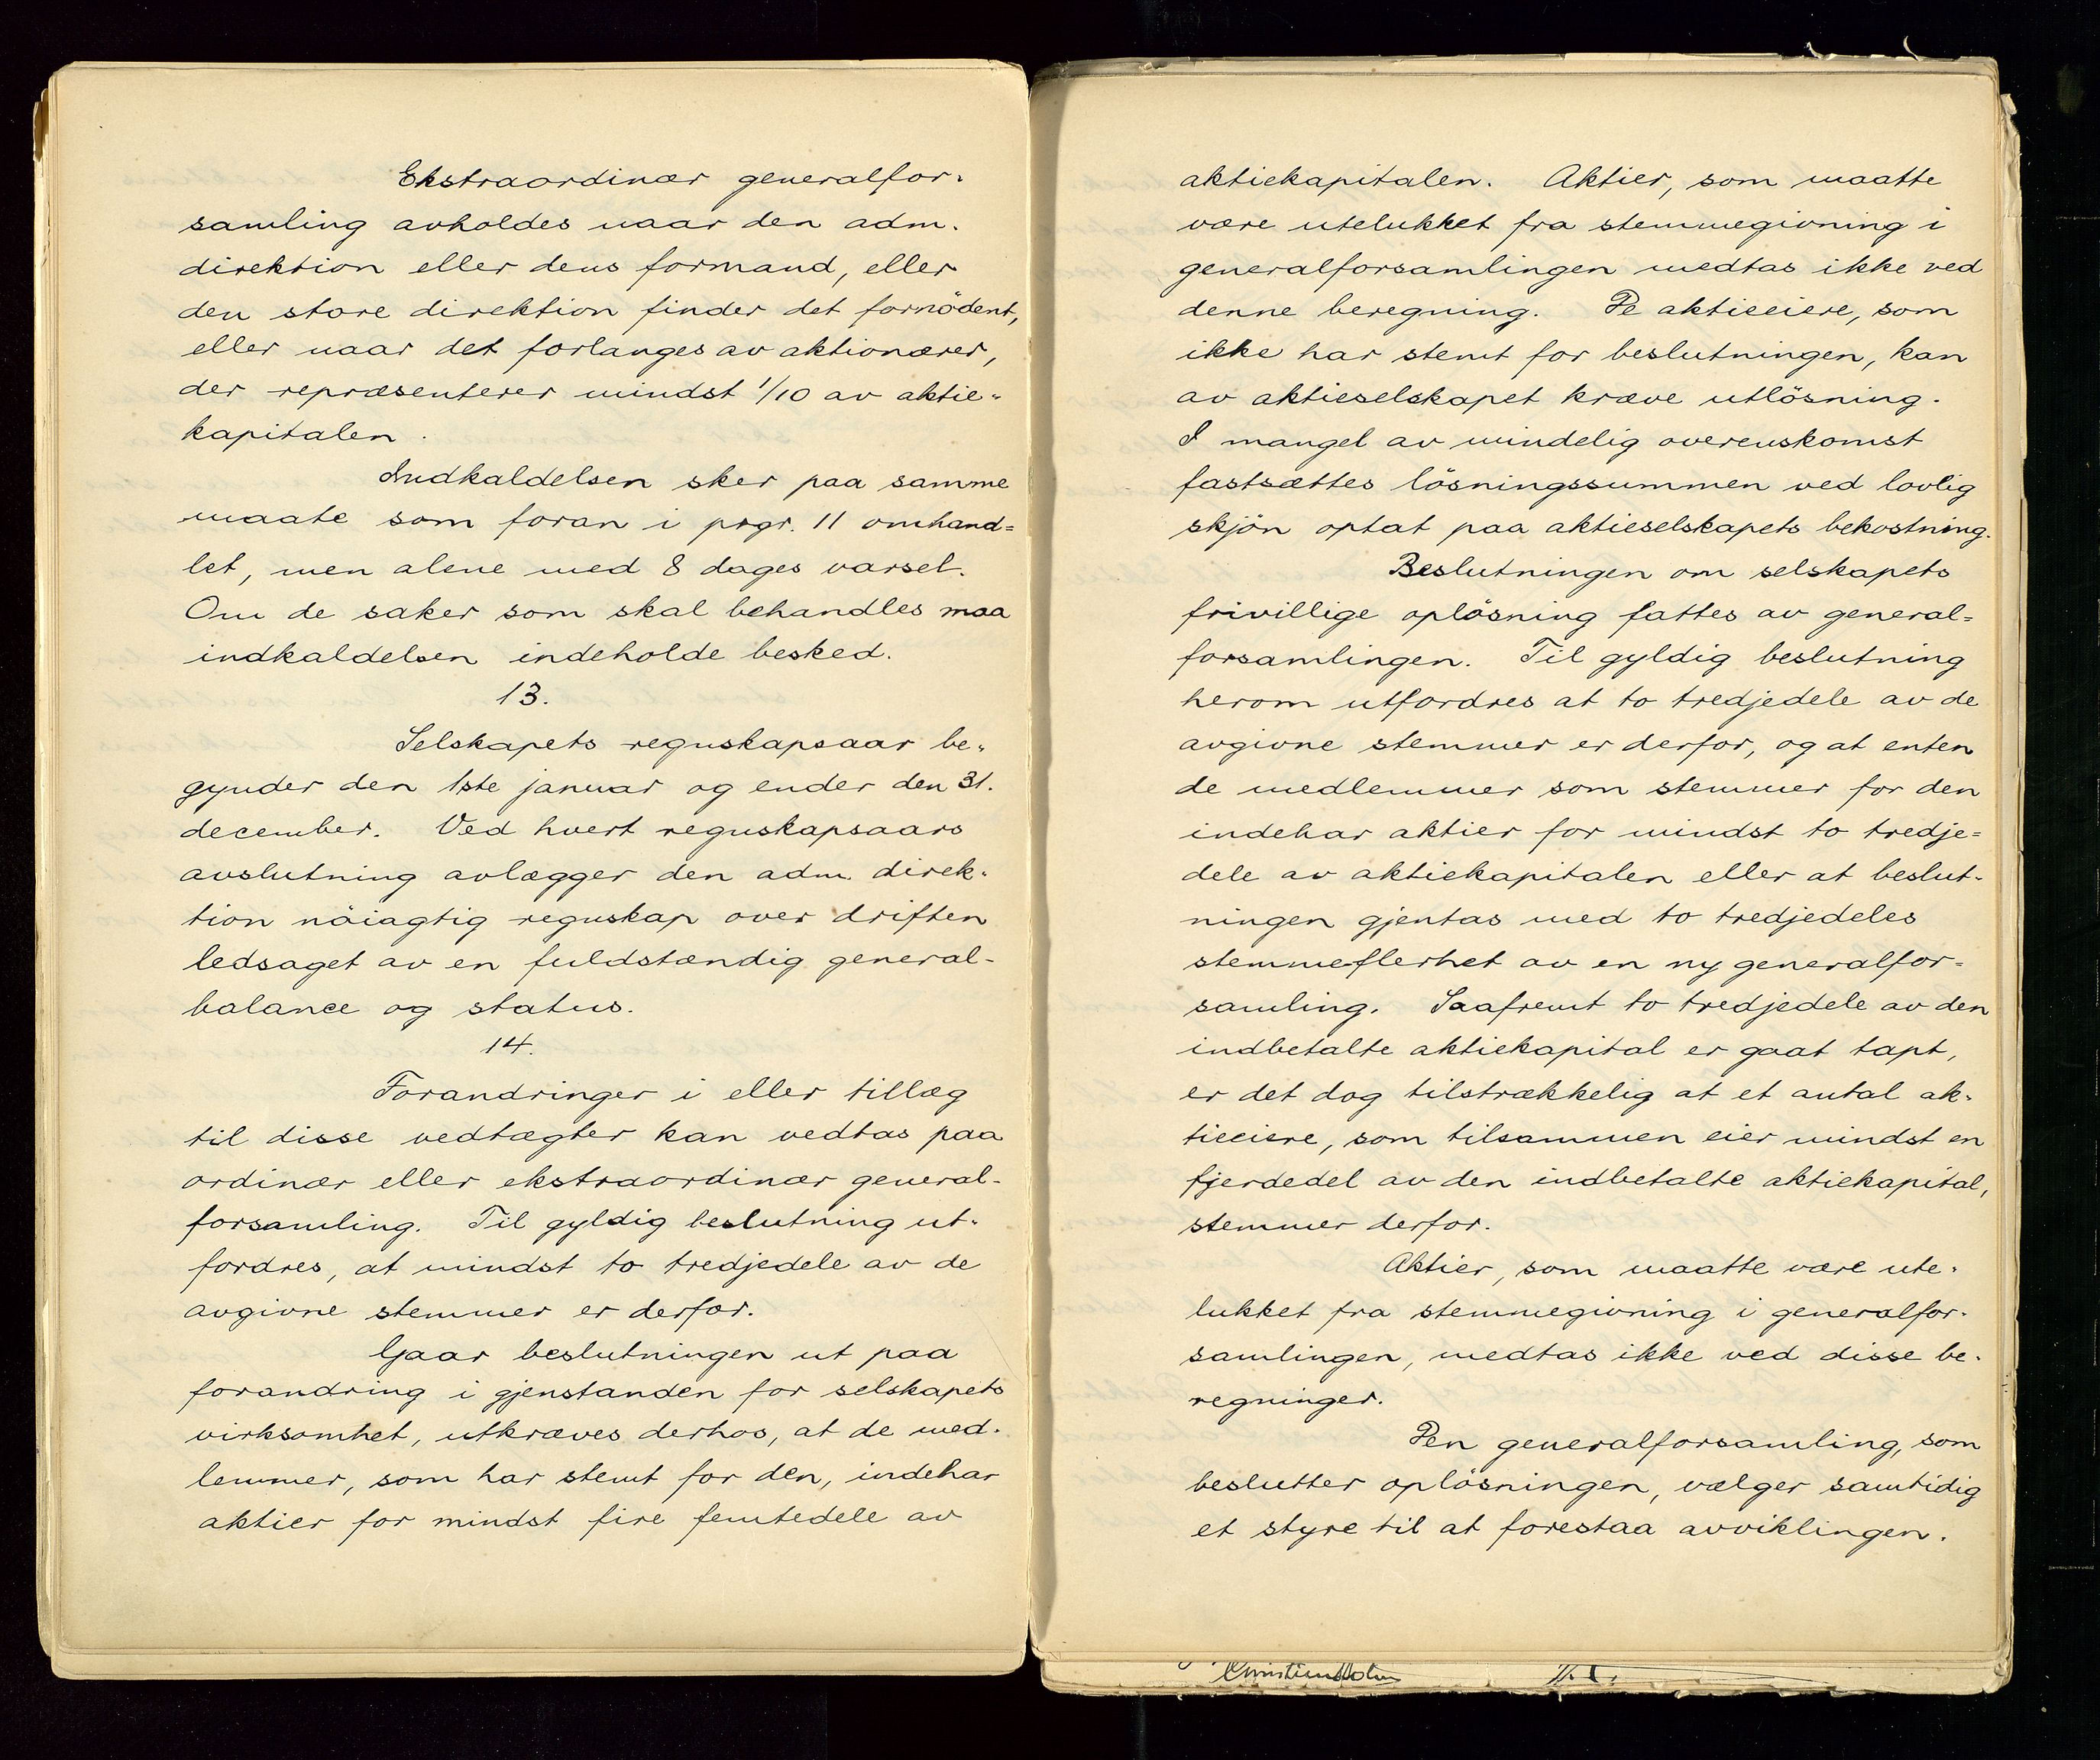 Ekstraordinær generalfor-
samling avholdes naar den adm.
direktion eller dens formand, eller
den store direktion finder det fornödent,
eller naar det forlanges av aktionærer,
der repræsenterer mindst 1/10 av aktie-
kapitalen.
Indkaldelsen sker paa samme
maate som foran i prgr. 11 omhand=
let, men alene med 8 dages varsel.
Om de saker som skal behandles maa
indkaldelsen indeholde besked.
13.
Selskapets regnskapsaar be-
gynder den 1ste januar og ender den 31.
december. Ved hvert regnskapsaars
avslutning avlægger den adm. direk-
tion nöiagtig regnskap over driften
ledsaget av en fuldstændig general-
balance og status.
14.
Forandringer i eller tillæg
til disse vedtægter kan vedtas paa
ordinær eller ekstraordinær general-
forsamling. Til gyldig beslutning ut-
fordres, at mindst to tredjedele av de
avgivne stemmer er derfor.
Gaar beslutningen ut paa
forandring i gjenstanden for selskapets
virksomhet, utkræves derhos, at de med-
lemmer, som har stemt for den, indehar
aktier for mindst fire femtedele av
aktiekapitalen. Aktier, som maatte
være utelukket fra stemmegivning i
generalforsamlingen medtas ikke ved
denne beregning. De aktieeiere, som
ikke har stemt for beslutningen, kan
av aktieselskapet kræve utlösning.
I mangel av mindelig overenskomst
fastsættes lösningssummen ved lovlig
skjön optat paa aktieselskapets bekostning.
Beslutningen om selskapets
frivillige oplösning fattes av general=
forsamlingen. Til gyldig beslutning
herom utfordres at to tredjedele av de
avgivne stemmer er derfor, og at enten
de medlemmer som stemmer for den
indehar aktier for mindst to tredje=
dele av aktiekapitalen eller at beslut-
ningen gjentas med to tredjedeles
stemmeflerhet av en ny generalfor=
samling. Saafremt to tredjedele av den
indbetalte aktiekapital er gaat tapt,
er det dog tilstrækkelig at et antal ak-
tieeiere, som tilsammen eier mindst en
fjerdedel av den indbetalte aktiekapital,
stemmer derfor.
Aktier, som maatte være ute-
lukket fra stemmegivning i generalfor-
samlingen, medtas ikke ved disse be-
regninger.
Den generalforsamling, som
beslutter oplösningen, vælger samtidig
et styre til at forestaa avviklingen.